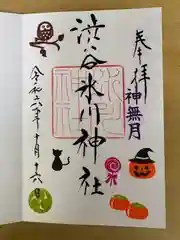 奉拝
神無月
渋谷氷川神社
令和六年十月十六日